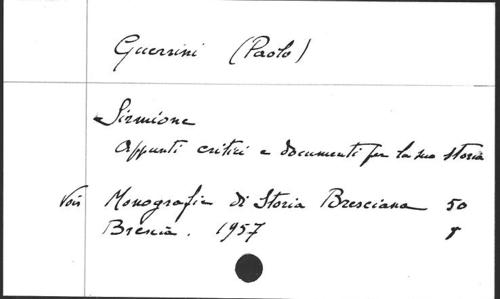 Guerrini (Paolo)
Sirmione
Appunti critici e documenti per la sua storia
Vois Monografie di Storia Bresciana 50
Brescia. 1957